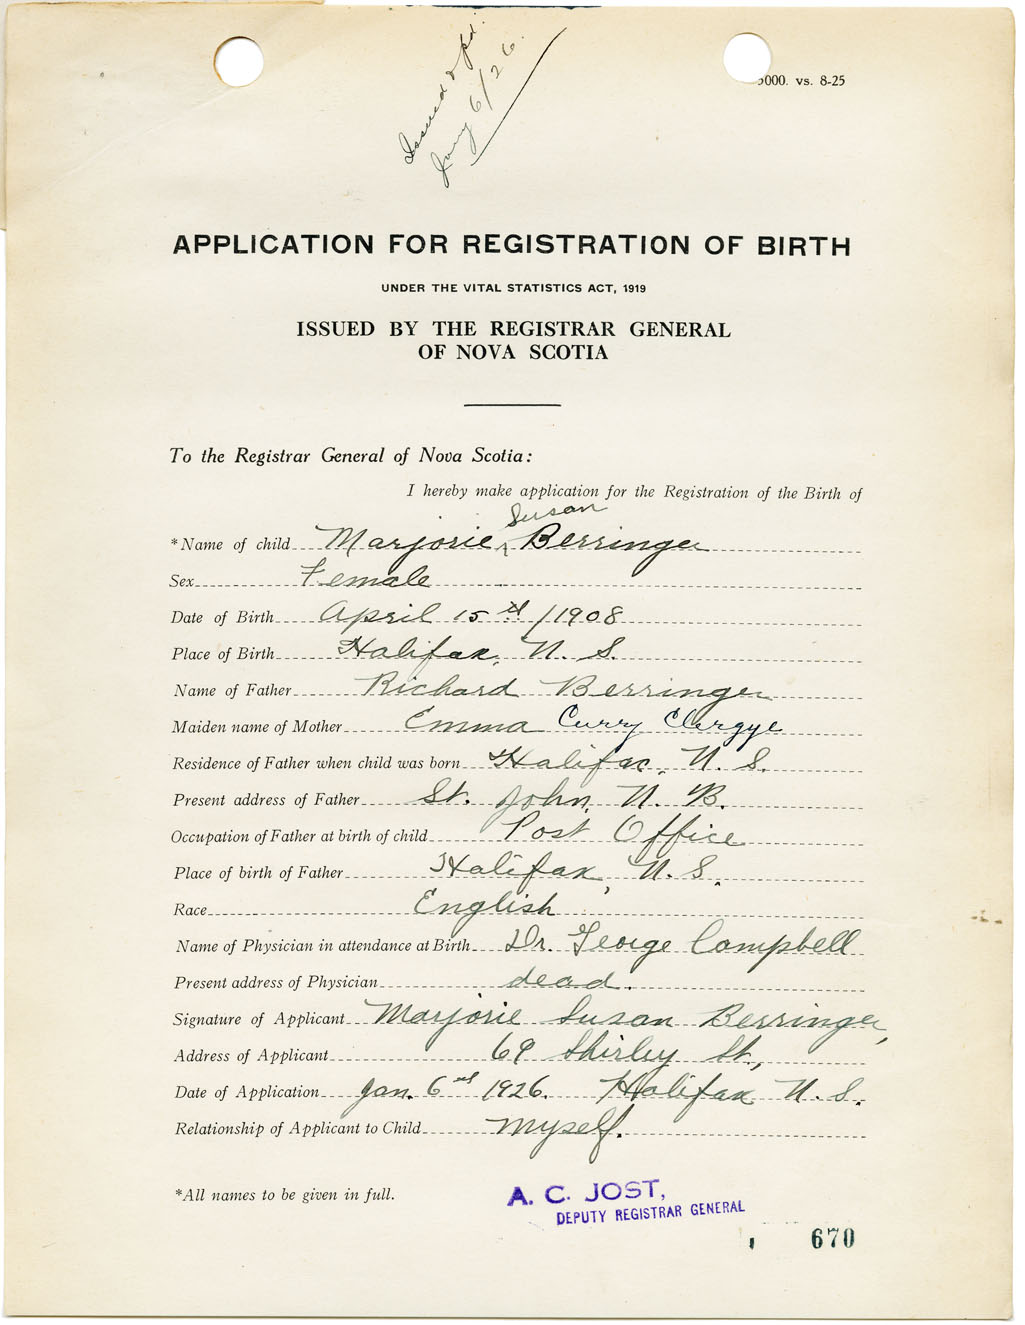 Issued & pd.
Jany 6/26.
5000. vs. 8-25
APPLICATION FOR REGISTRATION OF BIRTH
UNDER THE VITAL STATISTICS ACT, 1919
ISSUED BY THE REGISTRAR GENERAL
OF NOVA SCOTIA
To the Registrar General of Nova Scotia:
I hereby make application for the Registration of the Birth of
Susan
*Name of child Marjorie ^ Berringer
Sex Female
Date of Birth April 15th /1908
Place of Birth Halifax, N. S.
Name of Father Richard Berringer
Maiden name of Mother Emma Curry Clergye
Residence of Father when child was born Halifax, N. S.
Present address of Father St. John, N. B.
Occupation of Father at birth of child Post Office
Place of birth of Father Halifax, N. S.
Race English
Name of Physician in attendance at Birth Dr. George Campbell
Present address of Physician dead.
Signature of Applicant Marjorie Susan Berringer,
Address of Applicant 69 Shirley St.,
Date of Application Jan. 6th 1926. Halifax N. S.
Relationship of Applicant to Child myself.
*All names to be given in full.
A. C. JOST,
DEPUTY REGISTRAR GENERAL
670